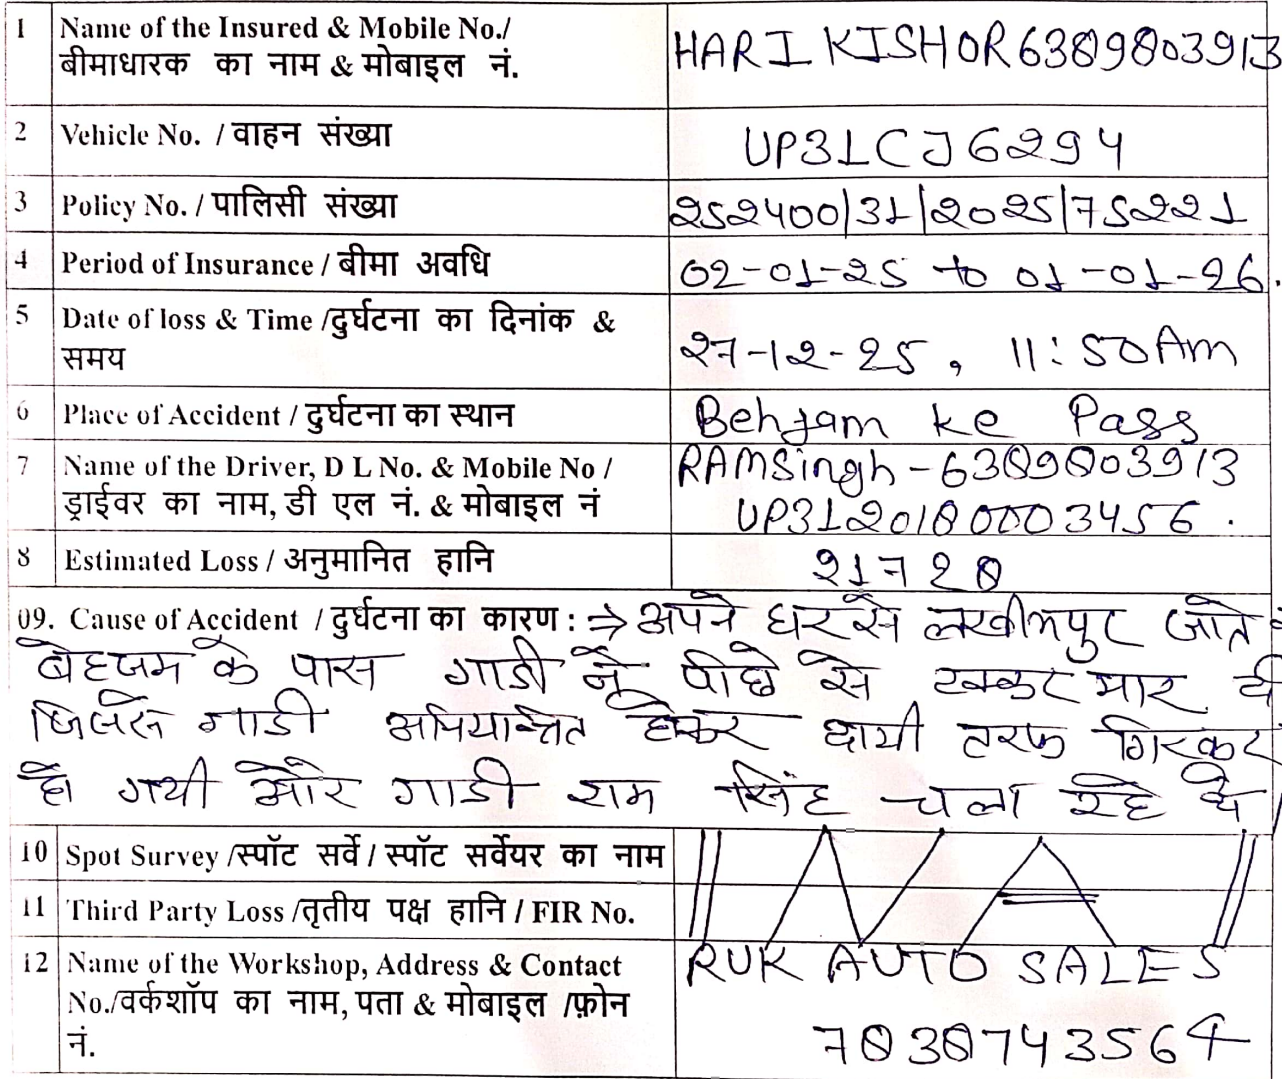 1 Name of the Insured & Mobile No./ HARI KISHOR 6389803913
बीमाधारक का नाम & मोबाइल नं.
2 Vehicle No. / वाहन संख्या UP31CJ6294
3 Policy No. / पालिसी संख्या 252400/31/2025/75221
4 Period of Insurance / बीमा अवधि 02-01-25 to 01-01-26.
5 Date of loss & Time /दुर्घटना का दिनांक &
समय 27-12-25, 11:50 Am
6 Place of Accident / दुर्घटना का स्थान Behjam ke Pass
7 Name of the Driver, D L No. & Mobile No / RAMSingh - 6389803913
ड्राईवर का नाम, डी एल नं. & मोबाइल नं UP3120180003456.
8 Estimated Loss / अनुमानित हानि 21728
09. Cause of Accident / दुर्घटना का कारण : ⇒ अपने घर से लखीमपुर जाते
बेहजम के पास गाडी ने पीछे से टक्कर मार दी
जिससे गाडी अनियान्त्रित होकर दायी तरफ गिरकर
हो गयी और गाडी राम सिंह चला रहे थे।
10 Spot Survey /स्पॉट सर्वे / स्पॉट सर्वेयर का नाम
11 Third Party Loss /तृतीय पक्ष हानि / FIR No.
|| N/A ||
12 Name of the Workshop, Address & Contact RUK AUTO SALES
No./वर्कशॉप का नाम, पता & मोबाइल /फ़ोन
नं. 7838743564